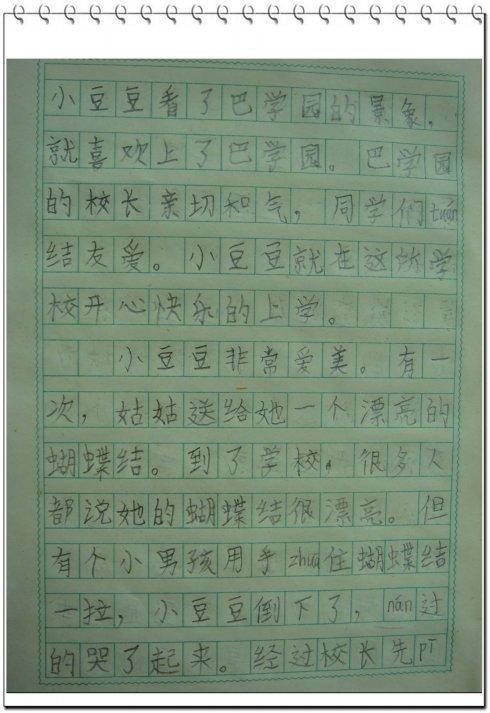 小豆豆看了巴学园的景象，
就喜欢上了巴学园。巴学园
的校长亲切和气，同学们tuán
结友爱。小豆豆就在这所学
校开心快乐的上学。
小豆豆非常爱美。有一
次，姑姑送给她一个漂亮的
蝴蝶结。到了学校，很多人
都说她的蝴蝶结很漂亮。但
有个小男孩用手zhuā住蝴蝶结
一拉，小豆豆倒下了，nán过
的哭了起来。经过校长先pī